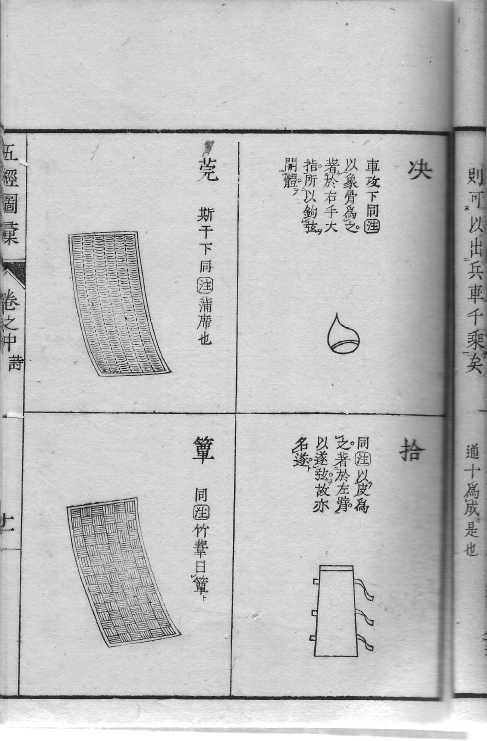 則可以出兵車千乘矣
通十爲成是也
決
車攻下同注
以象骨爲之
著於右手大
指所以鉤弦
開體
拾
同注以皮爲
之著於左臂
以遂弦故亦
名遂
莞
斯干下同注蒲席也
簟
同注竹葦曰簟
五經圖彙
卷之中
詩